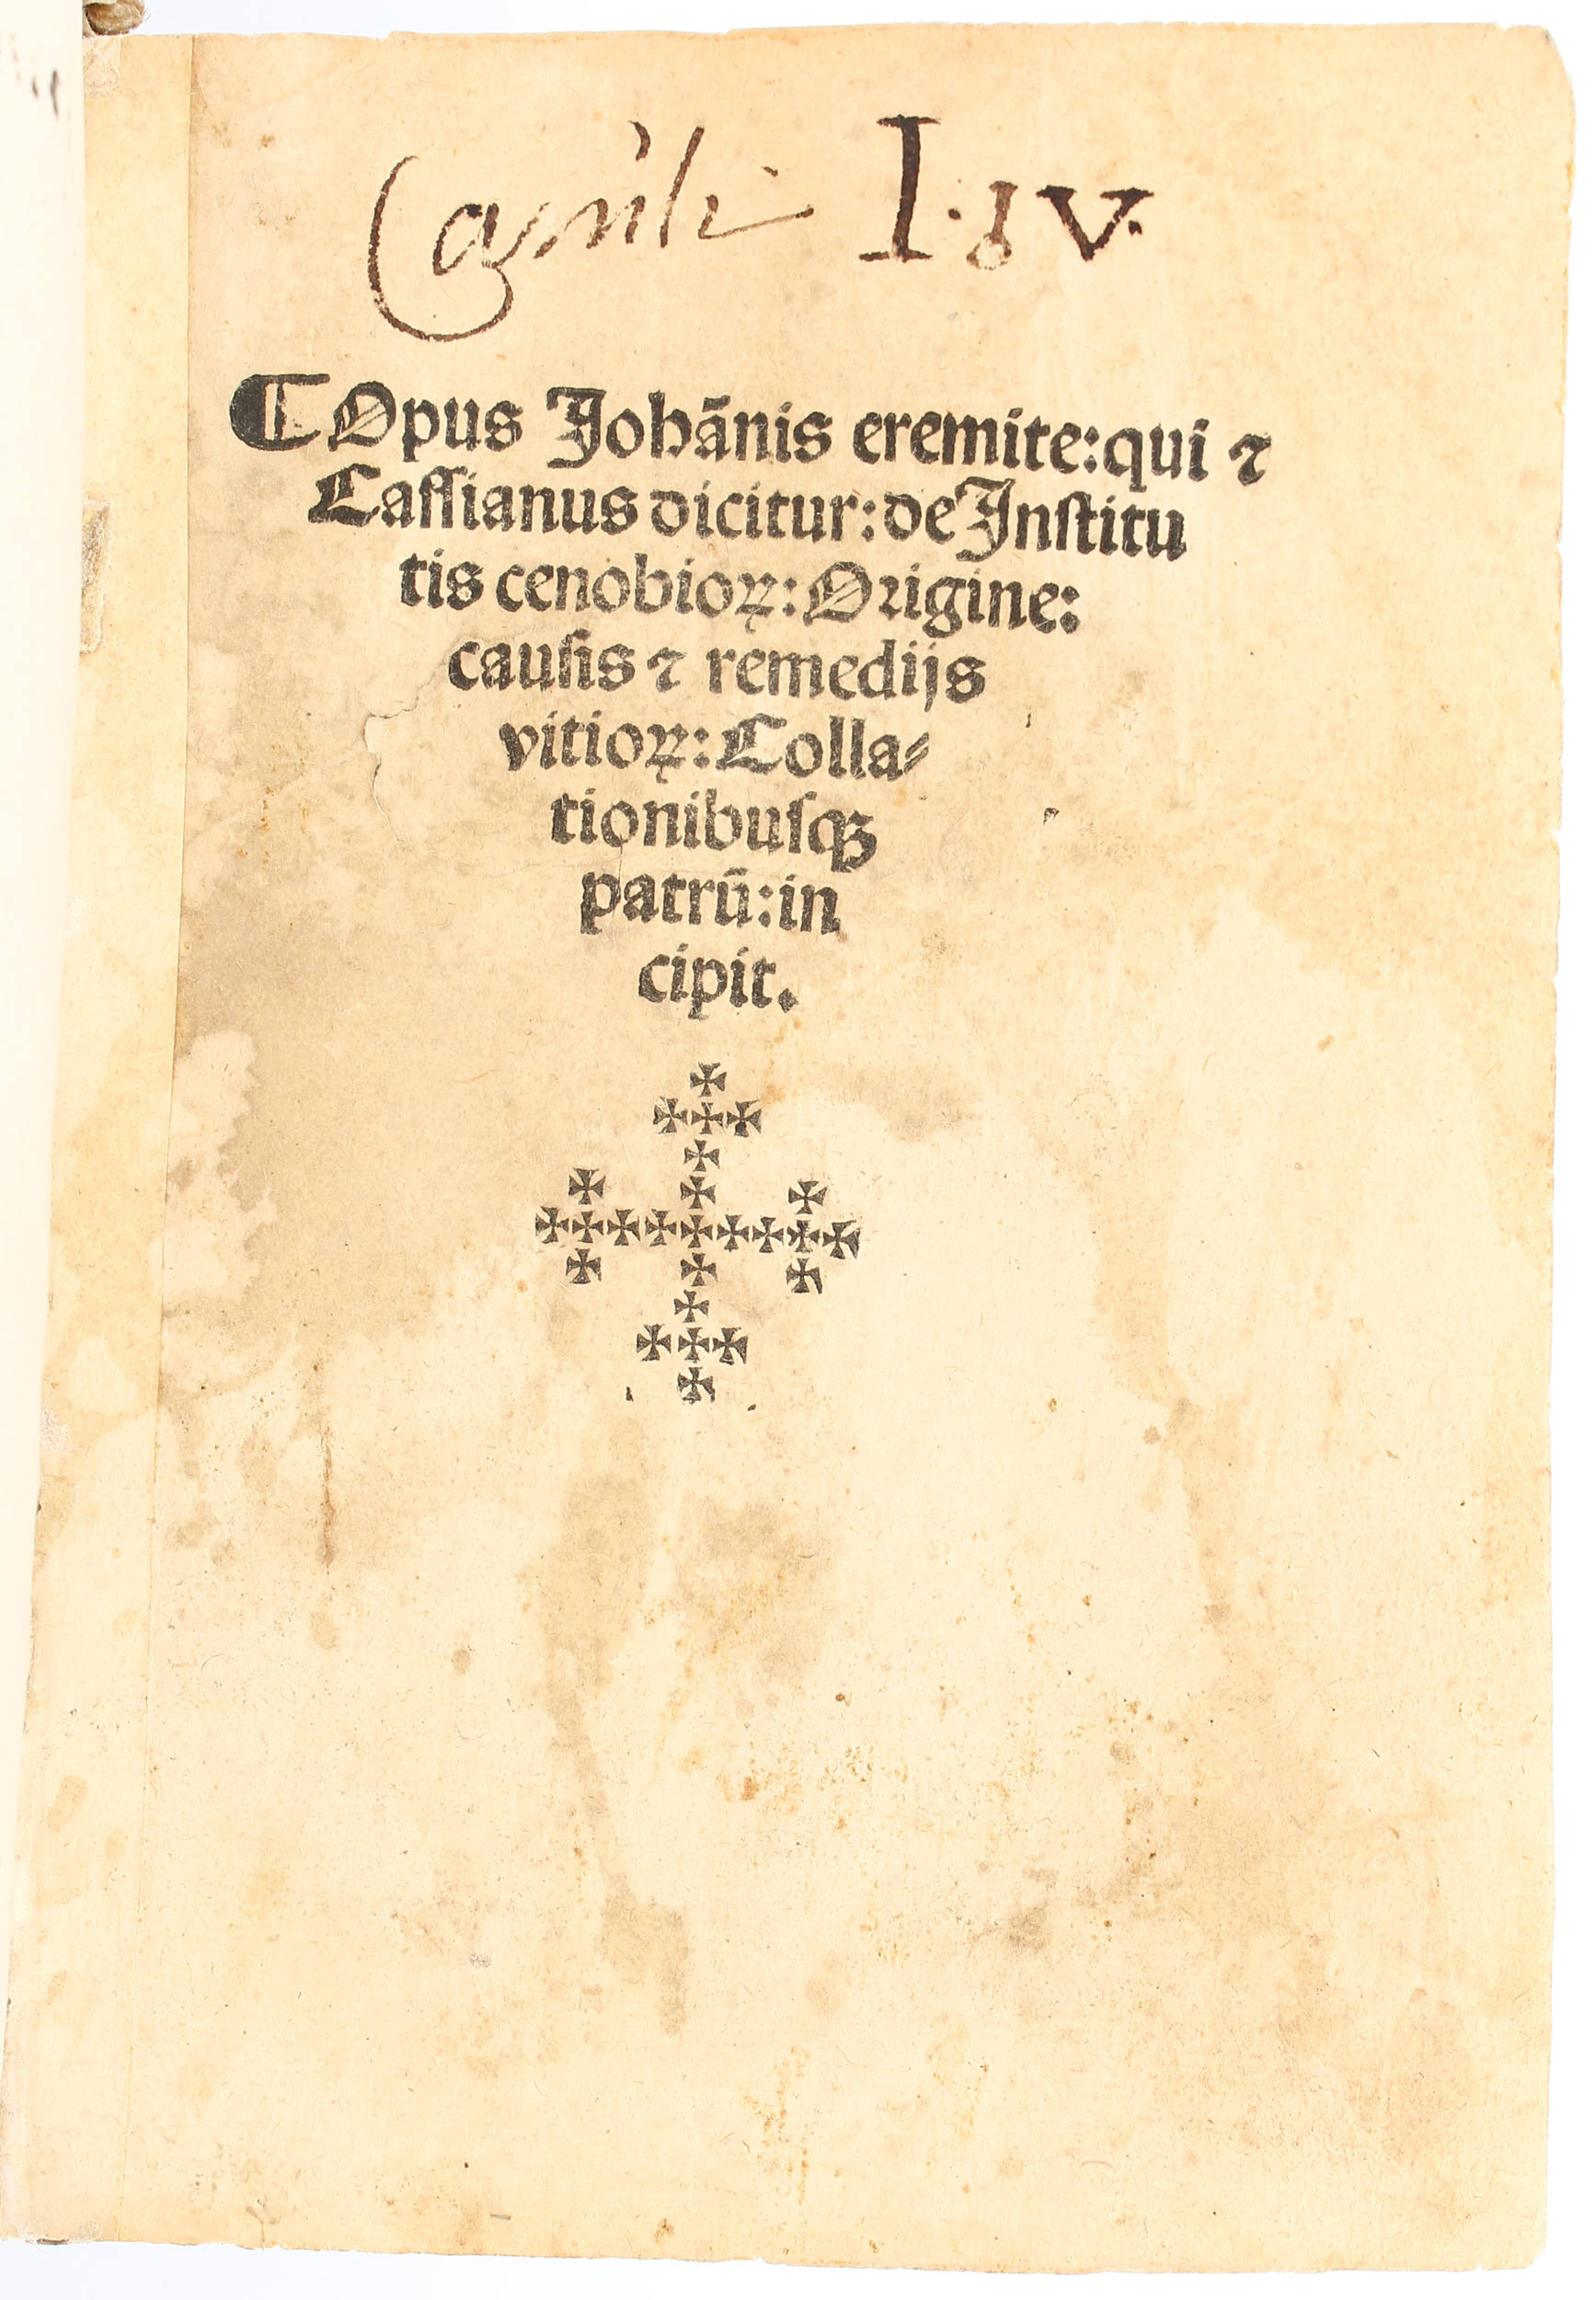 I · I V ·
⸿Opus Johānis eremite: qui ⁊
Cassianus dicitur: de Institu
tis cenobioꝝ: Origine:
causis ⁊ remedijs
vitioꝝ: Colla⸗
tionibusqꝫ
patrū: in
cipit.